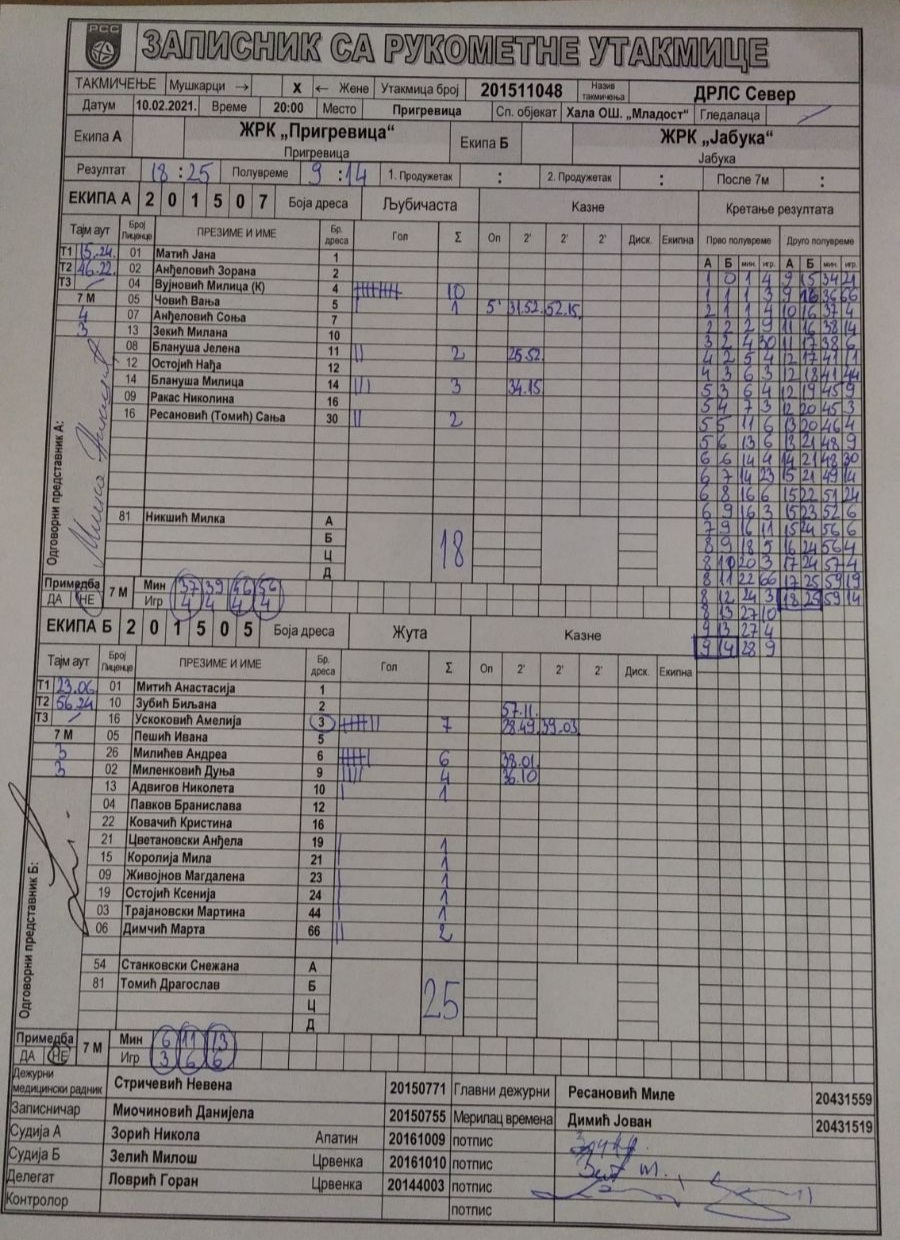 РСС
ЗАПИСНИК СА РУКОМЕТНЕ УТАКМИЦЕ
ТАКМИЧЕЊЕ Мушкарци → X ← Жене Утакмица број 201511048 Назив такмичења ДРЛС Север
Датум 10.02.2021. Време 20:00 Место Пригревица Сп. објекат Хала ОШ. „Младост“ Гледалаца
Екипа А ЖРК „Пригревица“ Екипа Б ЖРК „Јабука“
Пригревица Јабука
Резултат 18 : 25 Полувреме 9 : 14 1. Продужетак : 2. Продужетак : После 7м :
ЕКИПА А 2 0 1 5 0 7 Боја дреса Љубичаста Казне Кретање резултата
Тајм аут Број Лиценце ПРЕЗИМЕ И ИМЕ Бр. дреса Гол Σ Оп 2' 2' 2' Диск. Екипна Прво полувреме Друго полувреме
А Б мин. игр. А Б мин. игр.
Т1 15.24 01 Матић Јана 1
Т2 46.22 02 Анђеловић Зорана 2
Т3 04 Вујновић Милица (К) 4 10
7 М 05 Човић Вања 5 1 5' 31.52 52.15
4 07 Анђеловић Соња 7
3 13 Зекић Милана 10
08 Блануша Јелена 11 2 25.52
12 Остојић Нађа 12
14 Блануша Милица 14 3 34.15
09 Ракас Николина 16
16 Ресановић (Томић) Сања 30 2
Одговорни представник А:
81 Никшић Милка А
Б 18
Ц
Д
1 0 1 4 9 15 34 21
1 1 1 3 9 16 36 66
2 1 1 4 10 16 37 4
2 2 2 9 11 16 38 14
3 2 4 30 11 17 38 6
4 2 5 4 12 17 41 11
4 3 6 3 12 18 41 44
5 3 6 4 12 19 45 9
5 4 7 3 12 20 45 3
5 5 11 6 13 20 46 4
5 6 13 6 13 21 48 9
6 6 14 4 14 21 48 30
6 7 14 23 15 21 49 14
6 8 16 6 15 22 51 24
6 9 16 3 15 23 52 6
7 9 16 11 15 24 56 6
8 9 18 5 16 24 56 4
8 10 20 3 17 24 57 4
8 11 22 66 17 25 59 19
8 12 24 3 18 25 59 14
8 13 27 10
9 13 27 4
9 14 28 9
Примедба 7 М Мин 37 39 46 56
ДА НЕ Игр 4 4 4 4
ЕКИПА Б 2 0 1 5 0 5 Боја дреса Жута Казне
Тајм аут Број Лиценце ПРЕЗИМЕ И ИМЕ Бр. дреса Гол Σ Оп 2' 2' 2' Диск. Екипна
Т1 23.06 01 Митић Анастасија 1
Т2 56.24 10 Зубић Биљана 2 57.11
Т3 16 Ускоковић Амелија 3 7 28.49 39.03
7 М 05 Пешић Ивана 5
3 26 Милићев Андреа 6 6 38.01
3 02 Миленковић Дуња 9 4 36.10
13 Адвигов Николета 10 1
04 Павков Бранислава 12
22 Ковачић Кристина 16
21 Цветановски Анђела 19 1
15 Королија Мила 21 1
09 Живојнов Магдалена 23 1
19 Остојић Ксенија 24 1
03 Трајановски Мартина 44 1
06 Димчић Марта 66 2
Одговорни представник Б:
54 Станковски Снежана А
81 Томић Драгослав Б 25
Ц
Д
Примедба 7 М Мин 6 11 13
ДА НЕ Игр 3 6 6
Дежурни медицински радник Стричевић Невена 20150771 Главни дежурни Ресановић Миле 20431559
Записничар Миочиновић Данијела 20150755 Мерилац времена Димић Јован 20431519
Судија А Зорић Никола Апатин 20161009 потпис
Судија Б Зелић Милош Црвенка 20161010 потпис
Делегат Ловрић Горан Црвенка 20144003 потпис
Контролор потпис